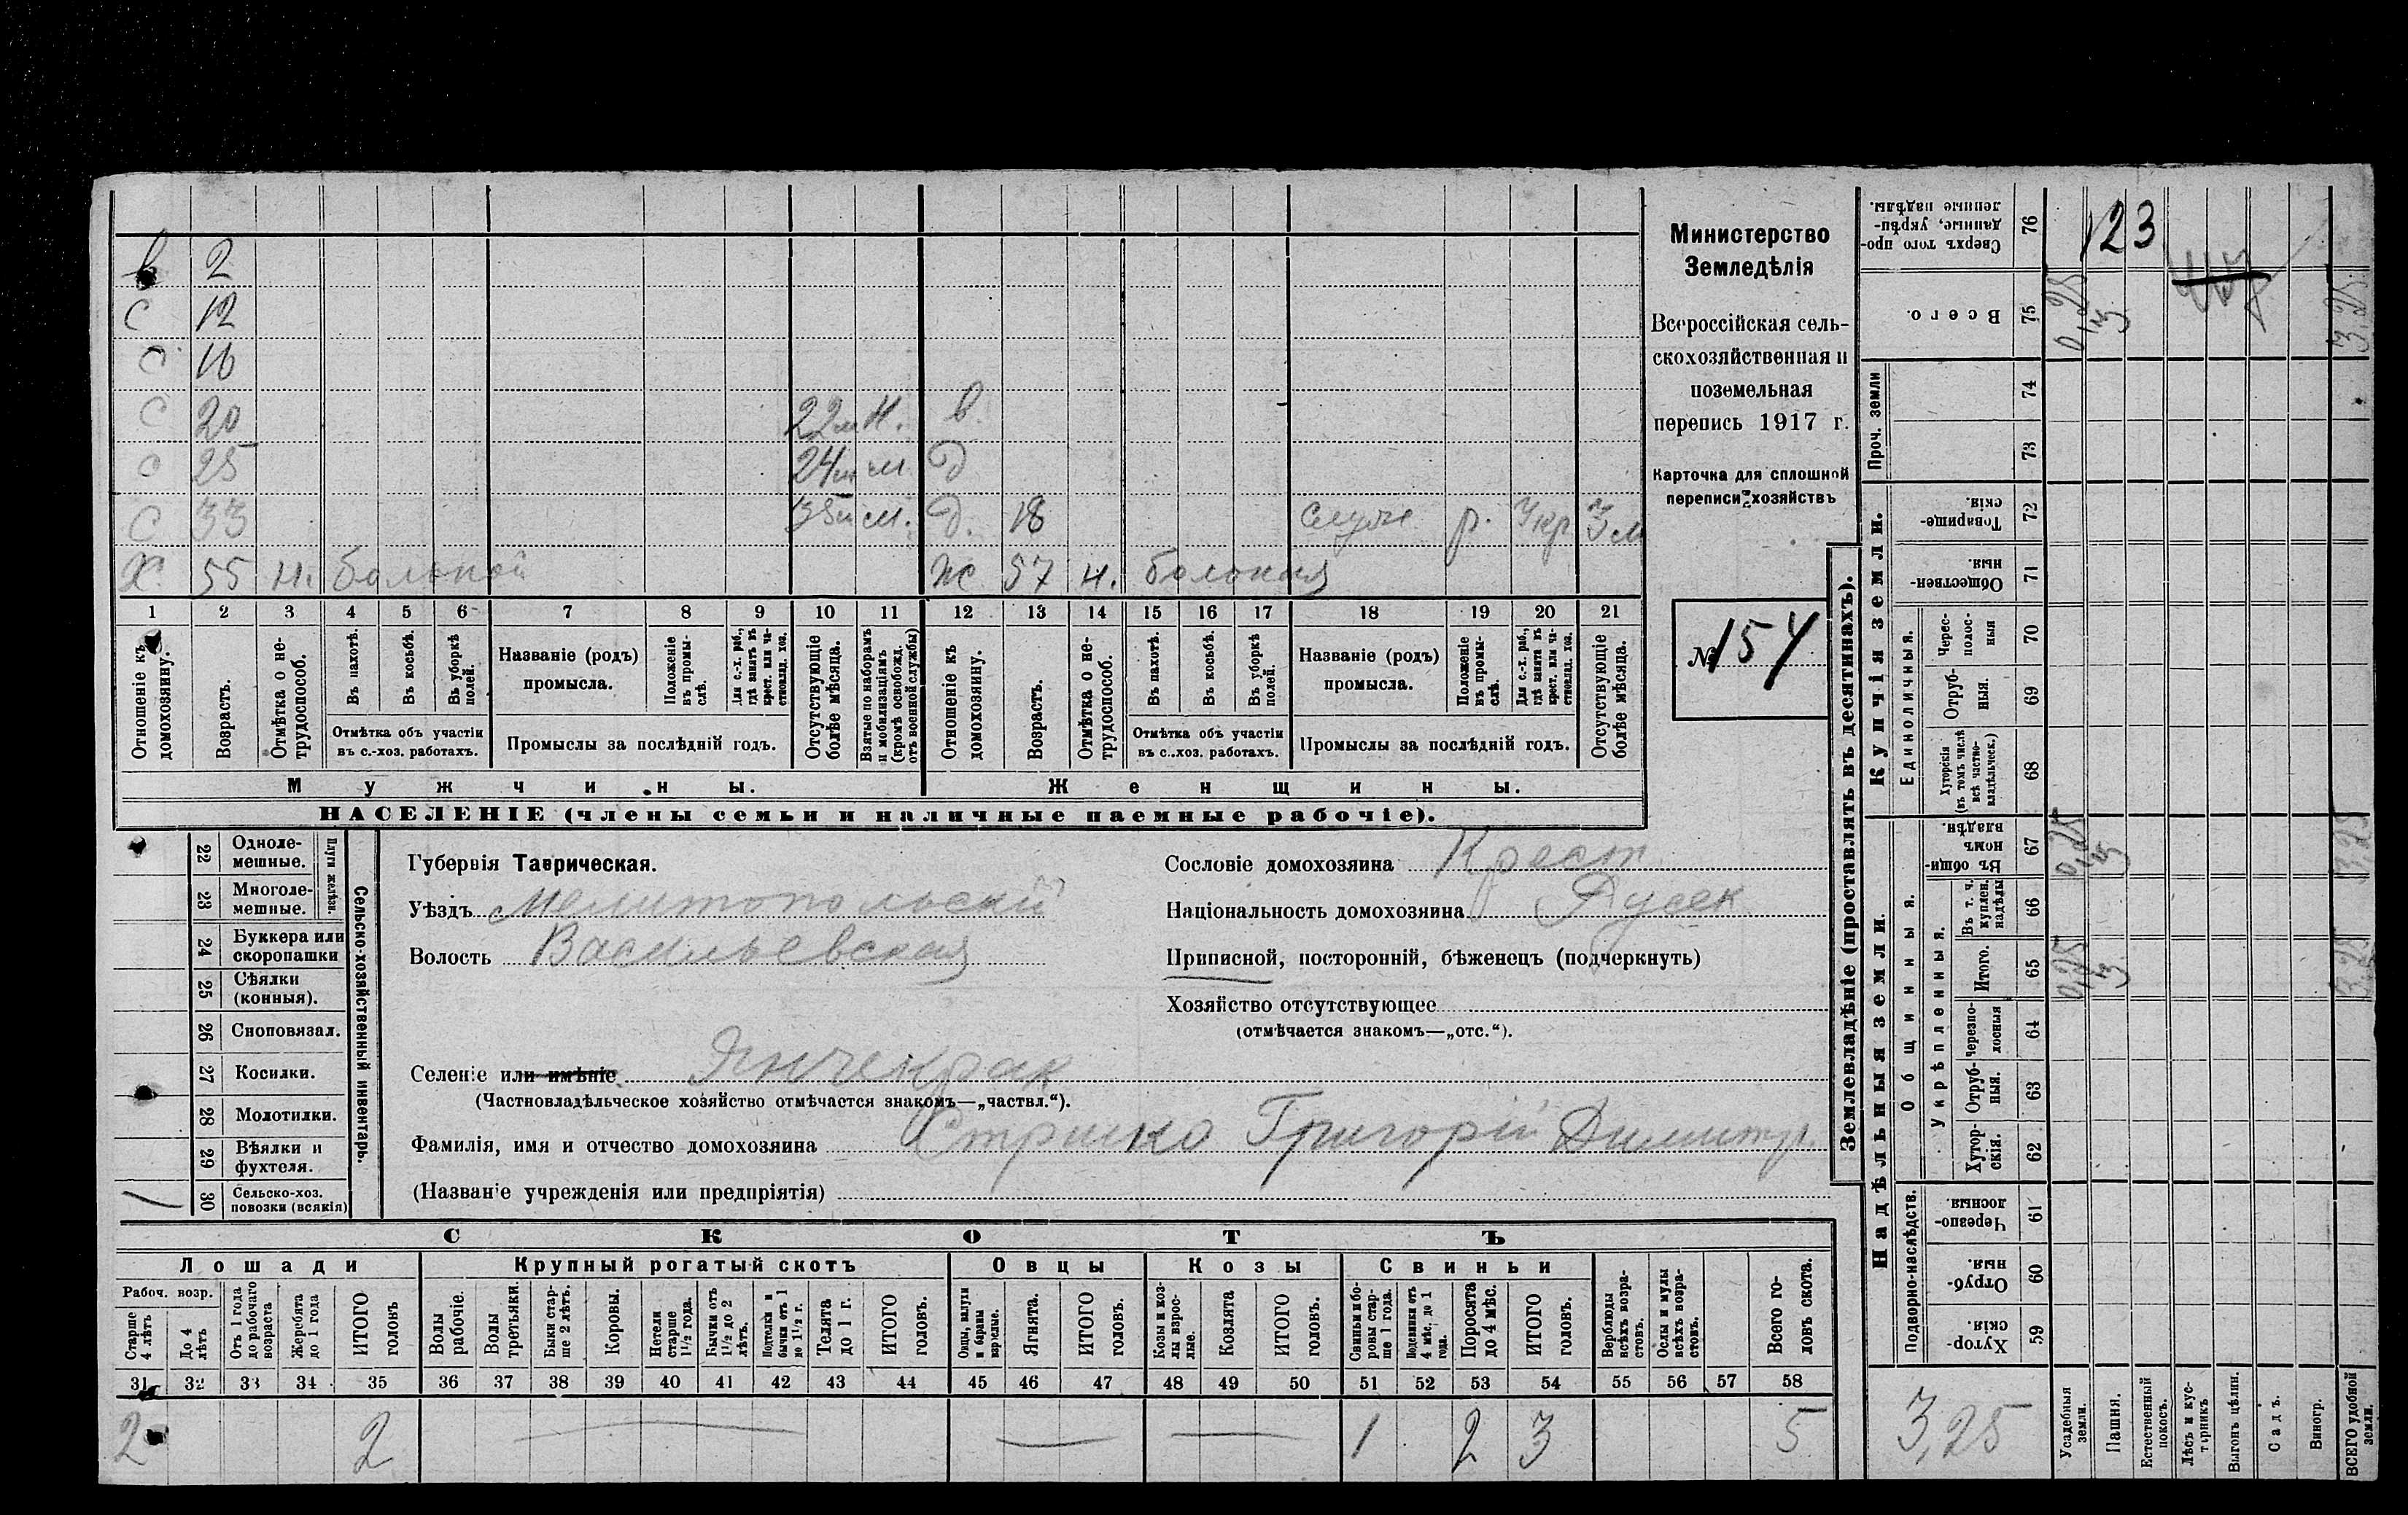 в 2
с 12
с 16
с 20 22 м н. в
с 25 24 м м д
с 33 35 м м. д. 18 служ р. Укр 3 м
х 55 н. больной ж 57 н. больная
1 2 3 4 5 6 7 8 9 10 11 12 13 14 15 16 17 18 19 20 21
Отношеніе къ домохозяину.
Возрастъ.
Отмѣтка о нетрудоспособ.
Въ пахотѣ.
Въ косьбѣ.
Въ уборкѣ полей.
Отмѣтка объ участіи въ с.-хоз. работахъ.
Названіе (родъ) промысла.
Положеніе въ промыслѣ.
Для с.-х. раб., гдѣ занятъ въ крест. или частновлад. хоз.
Промыслы за послѣдній годъ.
Отсутствующіе болѣе мѣсяца.
Взятые по наборамъ и мобилизаціямъ (кромѣ освобожд. отъ военной службы)
Отношеніе къ домохозяину.
Возрастъ.
Отмѣтка о нетрудоспособ.
Въ пахотѣ.
Въ косьбѣ.
Въ уборкѣ полей.
Отмѣтка объ участіи въ с.-хоз. работахъ.
Названіе (родъ) промысла.
Положеніе въ промыслѣ.
Для с.-х. раб., гдѣ занята въ крест. или частновлад. хоз.
Промыслы за послѣдній годъ.
Отсутствующіе болѣе мѣсяца.
Мужчины. Женщины.
НАСЕЛЕНІЕ (члены семьи и наличные наемные рабочіе).
Министерство
Земледѣлія
Всероссійская сель-
скохозяйственная и
поземельная
перепись 1917 г.
Карточка для сплошной
переписи хозяйствъ
№ 154
22 Одноле-
мешные.
23 Многоле-
мешные.
Плуги желѣзн.
24 Буккера или
скоропашки
25 Сѣялки
(конныя).
26 Сноповязал.
27 Косилки.
28 Молотилки.
29 Вѣялки и
фухтеля.
30 Сельско-хоз.
повозки (всякія)
Сельско-хозяйственный инвентарь.
Губернія Таврическая.
Уѣздъ Мелитопольскій
Волость Васильевская
Селеніе или имѣніе Янчекрак
(Частновладѣльческое хозяйство отмѣчается знакомъ—„частвл.“).
Фамилія, имя и отчество домохозяина Григорій Димитр.
(Названіе учрежденія или предпріятія)
Сословіе домохозяина Крест.
Національность домохозяина
Приписной, посторонній, бѣженецъ (подчеркнуть)
Хозяйство отсутствующее
(отмѣчается знакомъ—„отс.“).
СКОТЪ
Лошади Крупный рогатый скотъ Овцы Козы Свиньи
Рабоч. возр.
Старше 4 лѣтъ
До 4 лѣтъ
Отъ 1 года до рабочаго возраста
Жеребята до 1 года
ИТОГО головъ
Волы рабочіе.
Волы третьяки.
Быки старше 2 лѣтъ.
Коровы.
Нетели старше 1½ года.
Бычки отъ 1½ до 2 лѣтъ.
Подтелки и бычки отъ 1 до 1½ г.
Телята до 1 г.
ИТОГО головъ.
Овцы, валухи и бараны взрослые.
Ягнята.
ИТОГО головъ.
Козы и козлы взрослые.
Козлята
ИТОГО головъ.
Свиньи и боровы старше 1 года.
Подсвинки отъ 4 мѣс. до 1 года.
Поросята до 4 мѣс.
ИТОГО головъ.
Верблюды всѣхъ возрастовъ.
Ослы и мулы всѣхъ возрастовъ.
Всего головъ скота.
31 32 33 34 35 36 37 38 39 40 41 42 43 44 45 46 47 48 49 50 51 52 53 54 55 56 57 58
2 2 1 2 3 5
Землевладѣніе (проставлять въ десятинахъ).
Надѣльныя земли. Купчія земли.
Подворно-наслѣдств.
Общинныя.
Укрѣпленныя.
Единоличныя.
Проч. земли
76 Сверхъ того проданные, укрѣпленные надѣлы.
123
75 Всего. 0,25 3 3,25
74
73
72 Товарищескія.
71 Общественныя.
70 Чересполосныя
69 Отрубныя.
68 Хуторскія (въ томъ числѣ всѣ частновладѣльческ.)
67 Въ общинномъ владѣн. 0,25 3 3,25
66 Въ т. ч. куплен. надѣлы
65 Итого. 0,25 3 3,25
64 Черезполосныя
63 Отрубныя.
62 Хуторскія.
61 Черезполосныя
60 Отрубныя.
59 Хуторскія
3,25
Усадебныя земли.
Пашня.
Естественный покосъ.
Лѣсъ и кустарникъ
Выгонъ цѣлин.
Садъ.
Виногр.
ВСЕГО удобной земли.